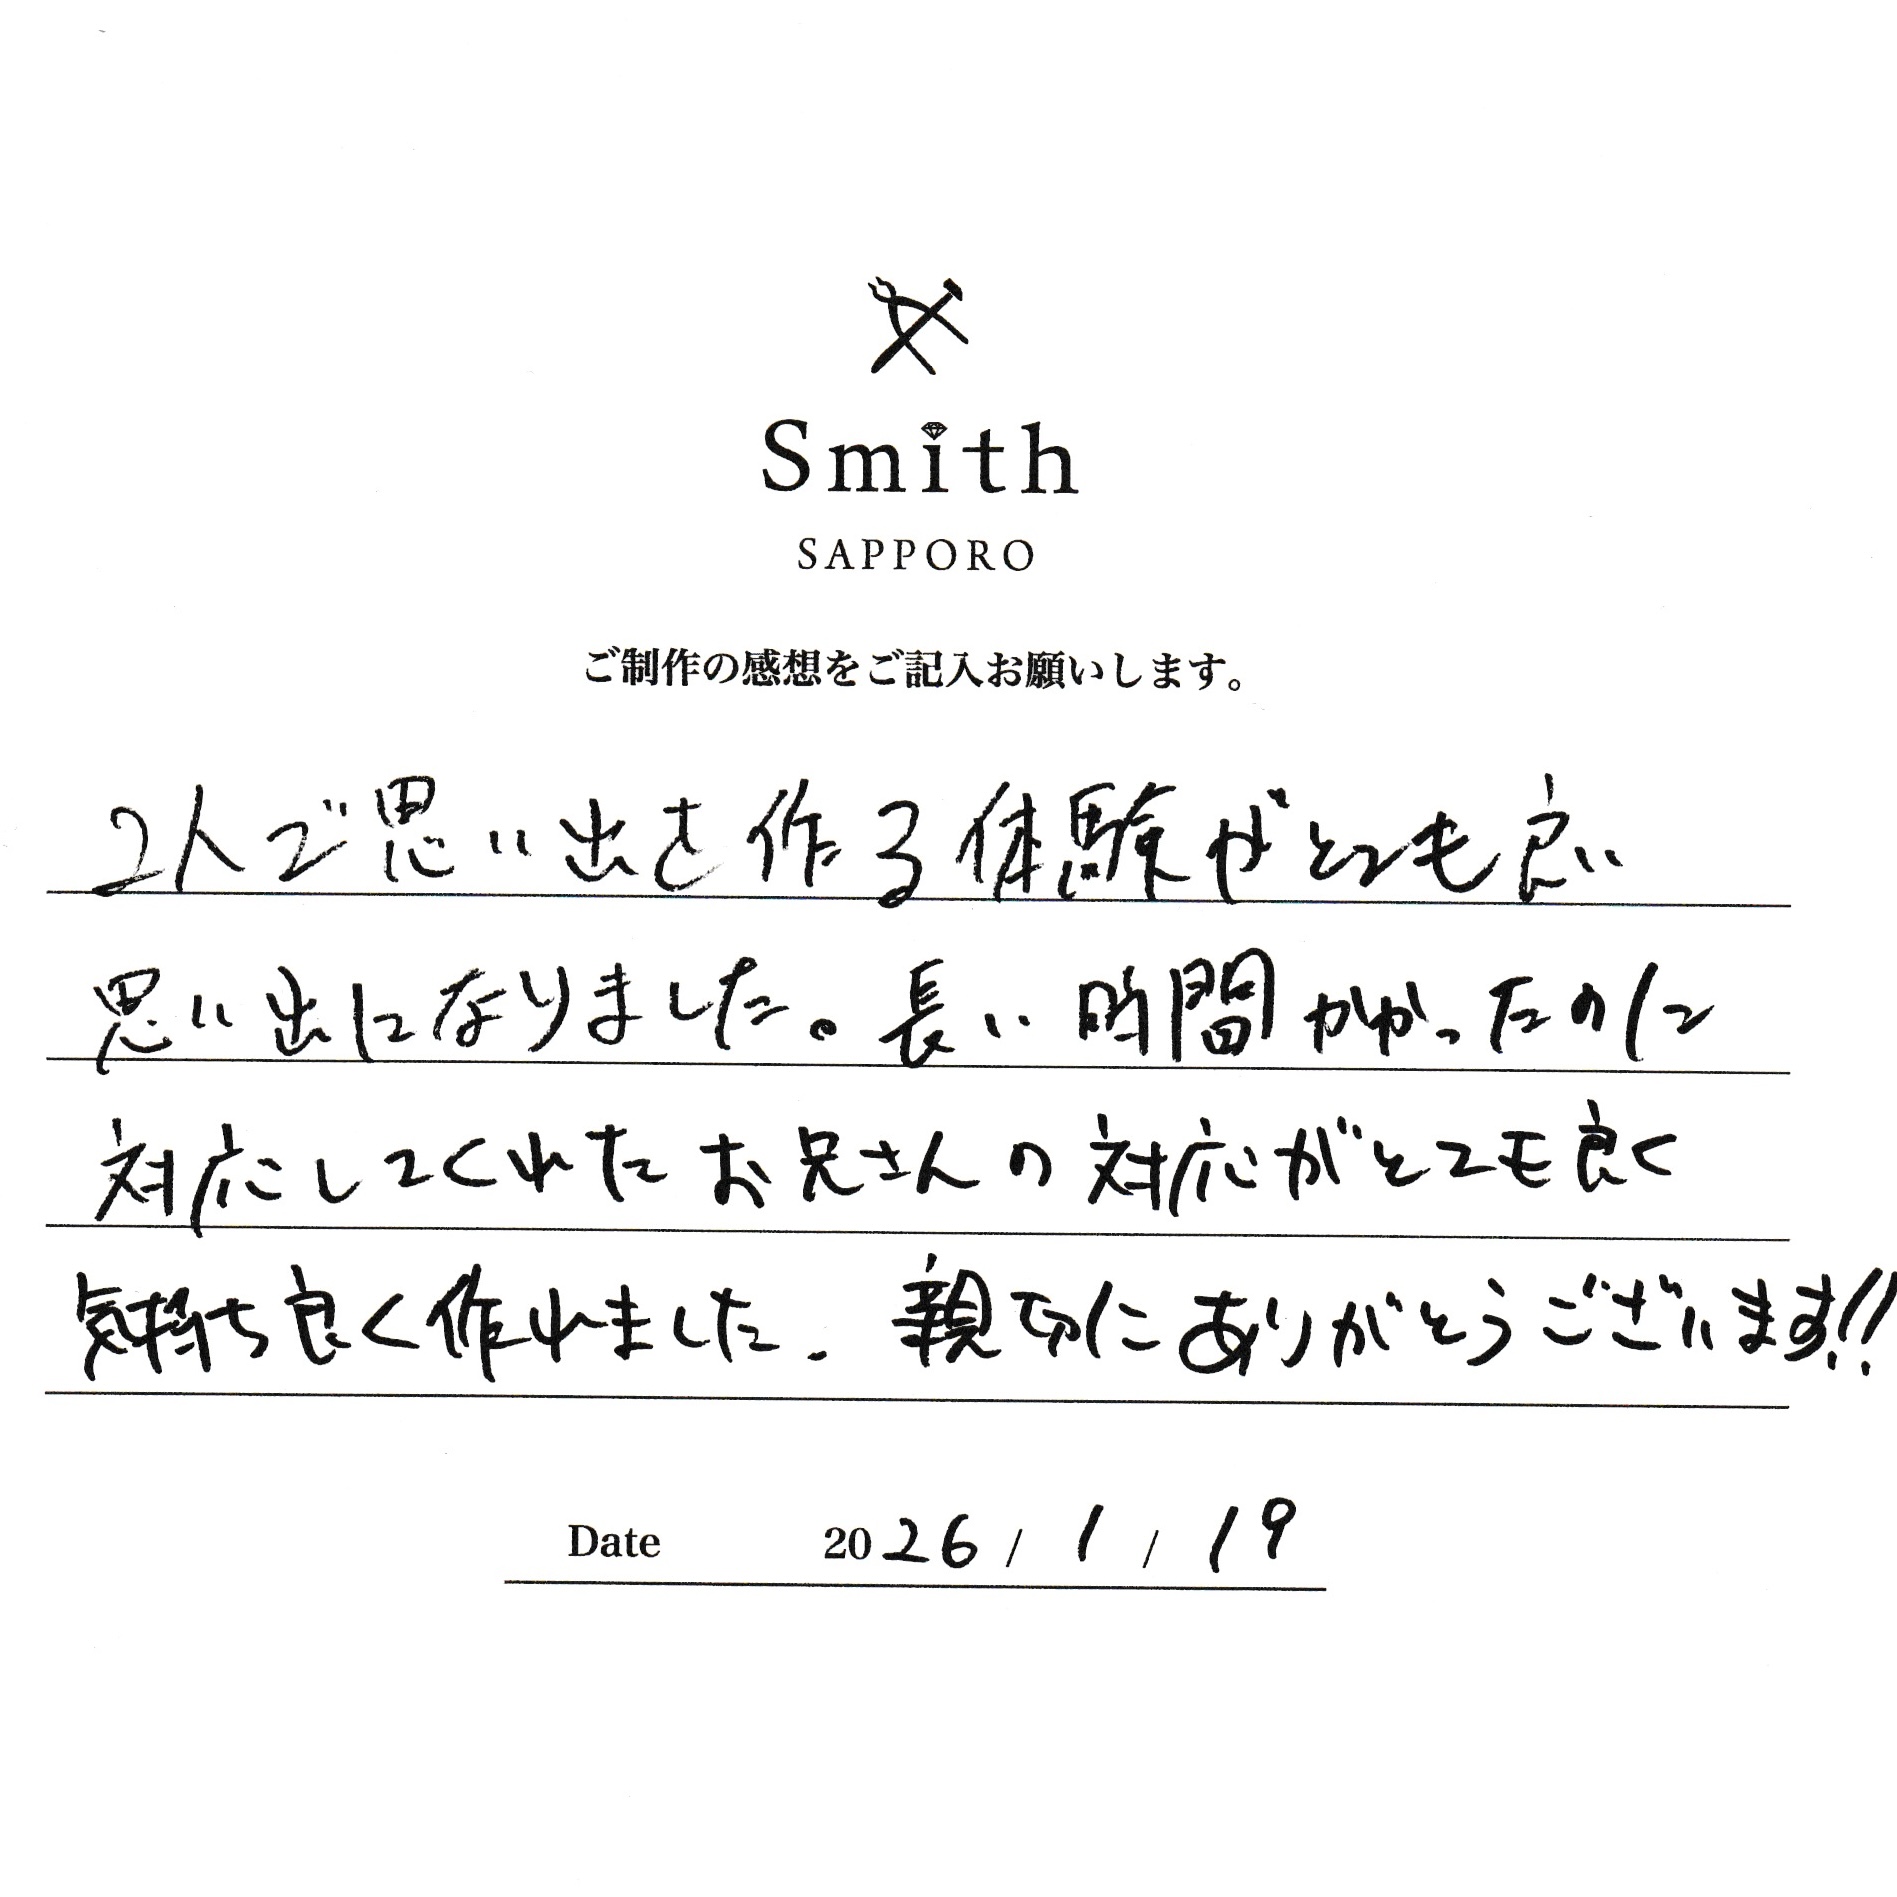 Smith
SAPPORO
ご制作の感想をご記入お願いします。
2人で思い出を作る体験がとても良い
思い出になりました。長い時間かかったのに
対応してくれたお兄さんの対応がとても良く
気持ち良く作れました。親切にありがとうございます!!
Date 2026/1/19